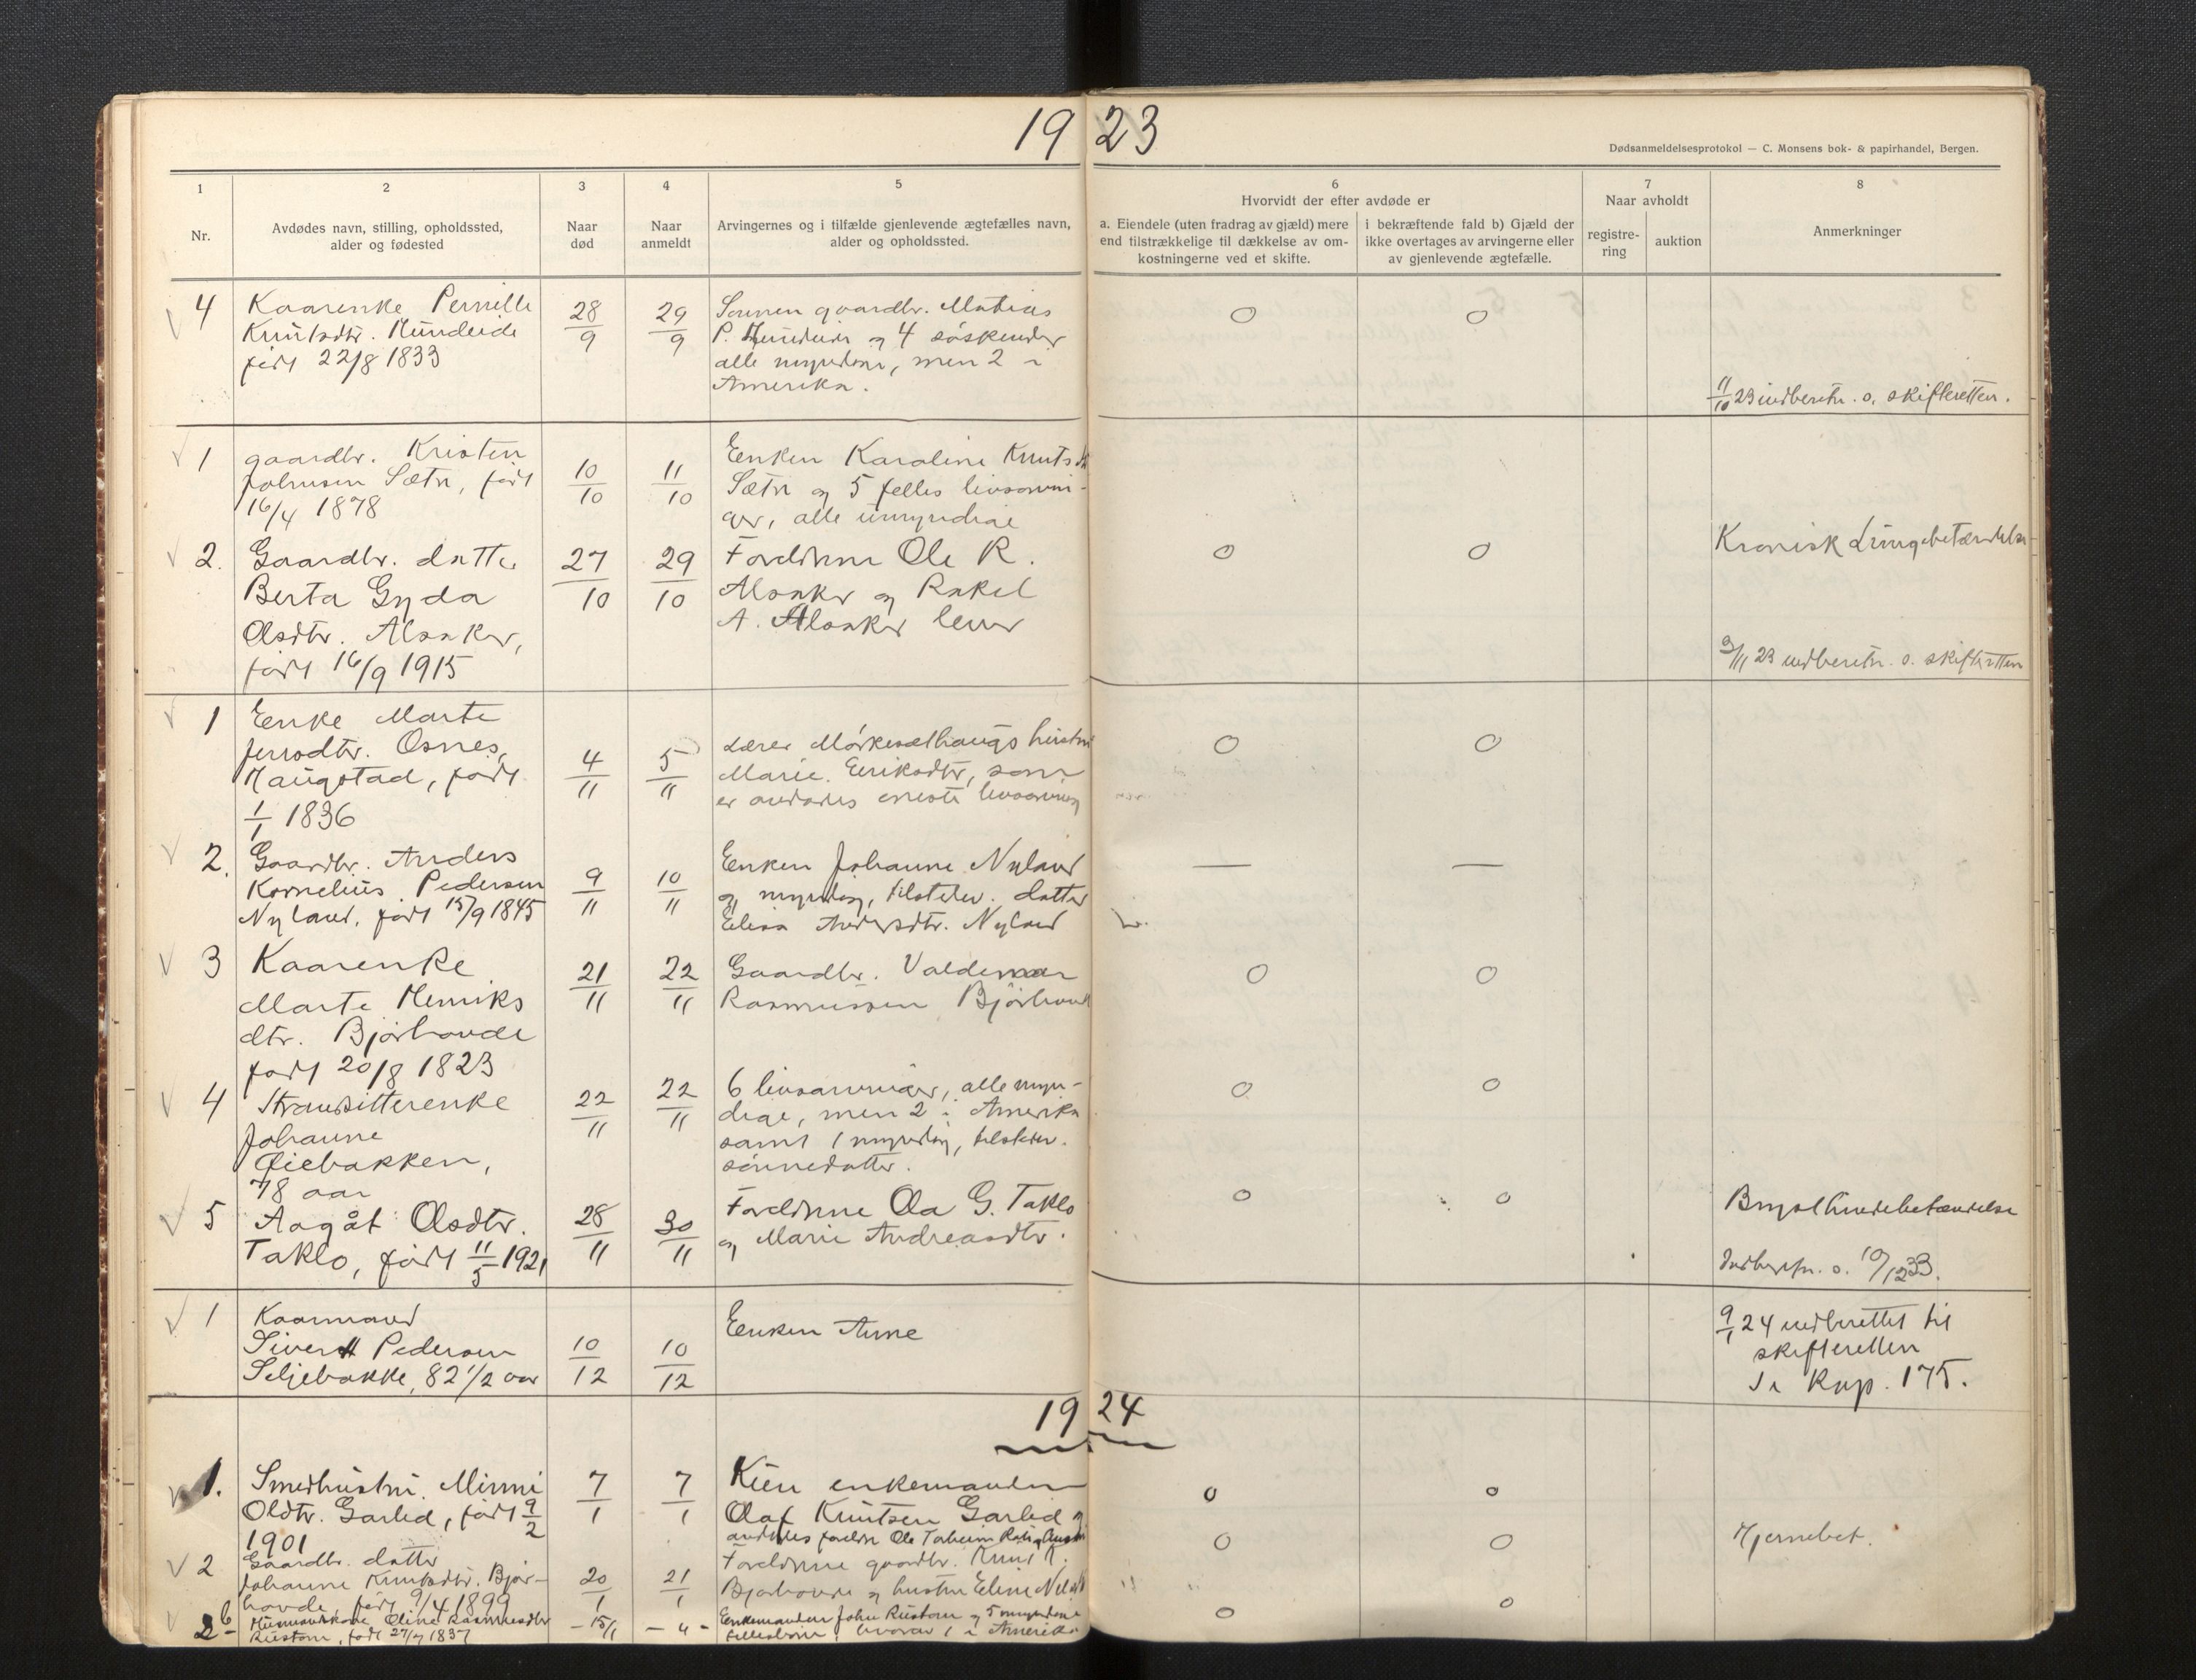 19 23
Dødsanmeldelsesprotokol — C. Monsens bok- & papirhandel, Bergen.
1 2 3 4 5 6 7 8
Nr.
Avdødes navn, stilling, opholdssted,
alder og fødested
Naar
død
Naar
anmeldt
Arvingernes og i tilfælde gjenlevende ægtefælles navn,
alder og opholdssted.
Hvorvidt der efter avdøde er
a. Eiendele (uten fradrag av gjæld) mere
end tilstrækkelige til dækkelse av om-
kostningerne ved et skifte.
i bekræftende fald b) Gjæld der
ikke overtages av arvingerne eller
av gjenlevende ægtefælle.
Naar avholdt
registre-
ring
auktion
Anmerkninger
4
Kaarenke Pernille
Knutsdtr. Hundeide
født 22/8 1833
28/9
29/9
Sønnen gaardbr. Matias
P. Hundeide og 4 søskender
alle myndige, men 2 i
Amerika.
0 0
11/10 23 indberetn. o. skifteretten.
1
gaardbr. Kristen
Johnsen Sætr, født
16/4 1878
10/10
11/10
Enken Karoline Knutsdtr
Sætr og 5 felles livsarvin-
ger, alle umyndige
2.
Gaardbr. datter
Berta Gyda
Olsdtr. Alsaker,
født 16/9 1915
27/10
29/10
Forældrene Ole R.
Alsaker og Rakel
A. Alsaker lever
0 0
Kronisk Lungebetændelse
3/11 23 indberetn. o. skifteretten
1
Enke Marte
Jensdtr. Osnes,
Haugstad, født
1/1 1836
4/11
5/11
Lærer hustru
Marie Eriksdtr, som
er avdødes eneste livsarving
0 0
2.
Gaardbr. Anders
Kornelius Pedersen
Nyland, født 15/9 1845
9/11
10/11
Enken Johanne Nyland
og myndig, tilstedev. datter
Elisa Andersdtr. Nyland
— —
3
Kaarenke
Marte Henriks
dtr. Bjørhovde
født 20/8 1823
21/11
22/11
Gaardbr. Valdemar
Rasmussen Bjørhovde
0 0
4
Strandsitterenke
Johanne
Øiebakken,
78 aar
22/11
22/11
6 livsarvinger, alle myn-
dige, men 2 i Amerika
samt 1 myndig, tilstedev.
sønnedatter.
0 0
5
Aagåt Olsdtr.
Taklo, født 11/5 1921
28/11
30/11
Forældrene Ola G. Taklo
og Marie Andreasdtr.
0 0
Brysthindebetændelse
Indberetn. o. 10/12 23.
1
Kaarmand
Sivert Pedersen
Seljebakke, 82 1/2 aar
10/12
10/12
Enken Anne
9/1 24 indberettet til
skifteretten
Se Kop. 175.
19 24
1.
Smedhustru Minni
Oldtr. Garlid, født 9/2
1901
7/1
7/1
Kun enkemanden
Olaf Knutsen Garlid og
avdødes forældre Ole Taheim
0 0
2
Gaardbr. datter
Johanne Knutsdtr. Bjør-
hovde, født 9/4 1899
20/1
21/1
Forældrene gaardbr. Knut R.
Bjørhovde og hustru Eline
0 0
Hjernebet.
2b
Husmandskone Oline Rasmusdtr
Rustøen, født 27/7 1837
– 15/1
– " –
Enkemanden John Rustøen og 5 myndige
fellesbørn, hvorav 1 i Amerika
0 0